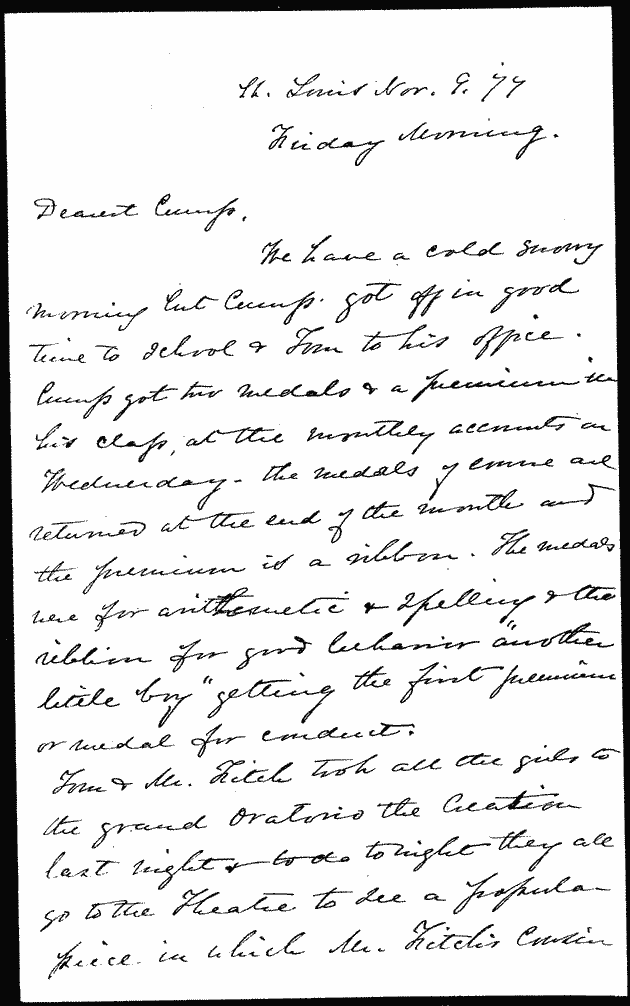 St. Louis Nov. 9. '77
Friday Morning.
Dearest Cump,
We have a cold snowy
morning but Cump. got off in good
time to School & Tom to his office.
Cump got two medals & a premium in
his class, at the monthly accounts on
Wednesday - the medals of course are
returned at the end of the month and
the premium is a ribbon. The medals
were for arithmetic & Spelling & the
ribbon for good behavior "another
little boy" getting the first premium
or medal for conduct.
Tom & Mr. Fitch took all the girls to
the grand Oratorio the Creation
last night & to do tonight they all
go to the Theatre to see a popular
piece in which Mr. Fitch's Cousin